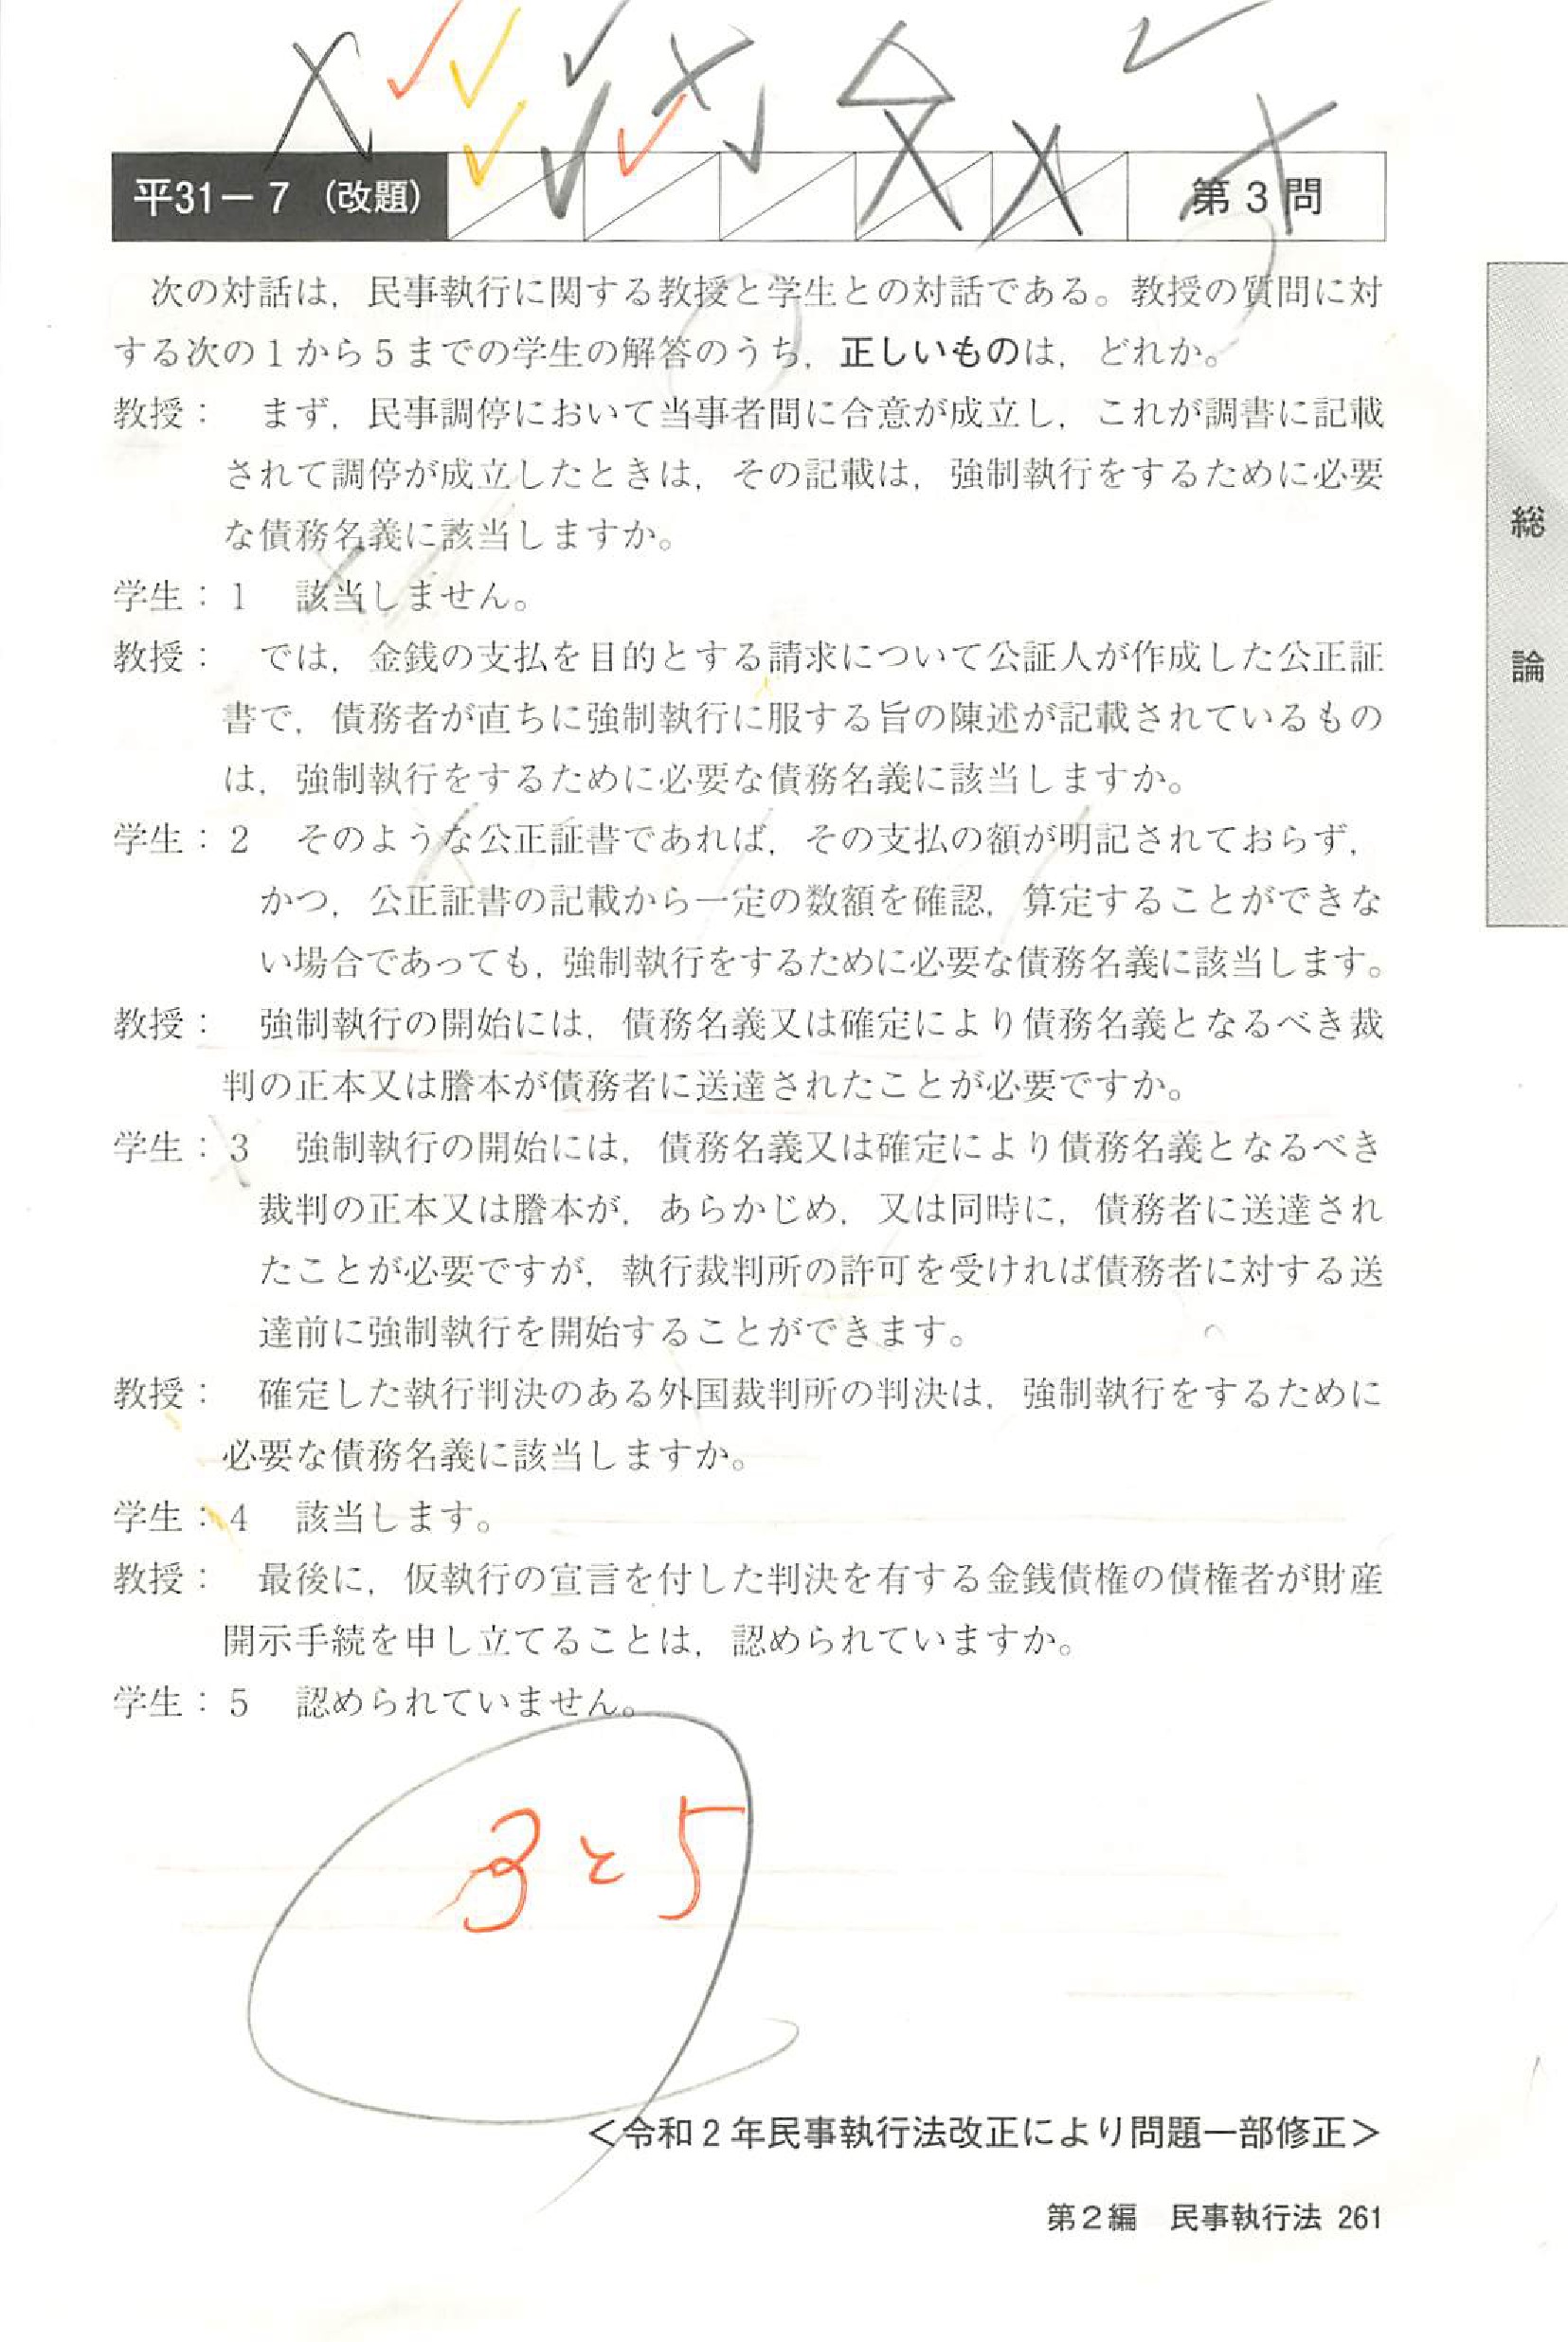 平31－7（改題）
第3問
次の対話は，民事執行に関する教授と学生との対話である。教授の質問に対
する次の1から5までの学生の解答のうち，正しいものは，どれか。
教授：　まず，民事調停において当事者間に合意が成立し，これが調書に記載
されて調停が成立したときは，その記載は，強制執行をするために必要
な債務名義に該当しますか。
学生：1　該当しません。
教授：　では，金銭の支払を目的とする請求について公証人が作成した公正証
書で，債務者が直ちに強制執行に服する旨の陳述が記載されているもの
は，強制執行をするために必要な債務名義に該当しますか。
学生：2　そのような公正証書であれば，その支払の額が明記されておらず，
かつ，公正証書の記載から一定の数額を確認，算定することができな
い場合であっても，強制執行をするために必要な債務名義に該当します。
教授：　強制執行の開始には，債務名義又は確定により債務名義となるべき裁
判の正本又は謄本が債務者に送達されたことが必要ですか。
学生：3　強制執行の開始には，債務名義又は確定により債務名義となるべき
裁判の正本又は謄本が，あらかじめ，又は同時に，債務者に送達され
たことが必要ですが，執行裁判所の許可を受ければ債務者に対する送
達前に強制執行を開始することができます。
教授：　確定した執行判決のある外国裁判所の判決は，強制執行をするために
必要な債務名義に該当しますか。
学生：4　該当します。
教授：　最後に，仮執行の宣言を付した判決を有する金銭債権の債権者が財産
開示手続を申し立てることは，認められていますか。
学生：5　認められていません。
3と5
＜令和2年民事執行法改正により問題一部修正＞
第2編　民事執行法 261
総論